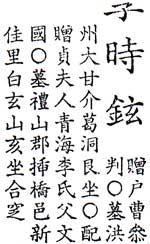 子時鉉
贈戶曹叅
判○墓洪
州大甘介葛洞艮坐○配
贈貞夫人青海李氏父文
國○墓禮山郡揷橋邑新
佳里白玄山亥坐合窆